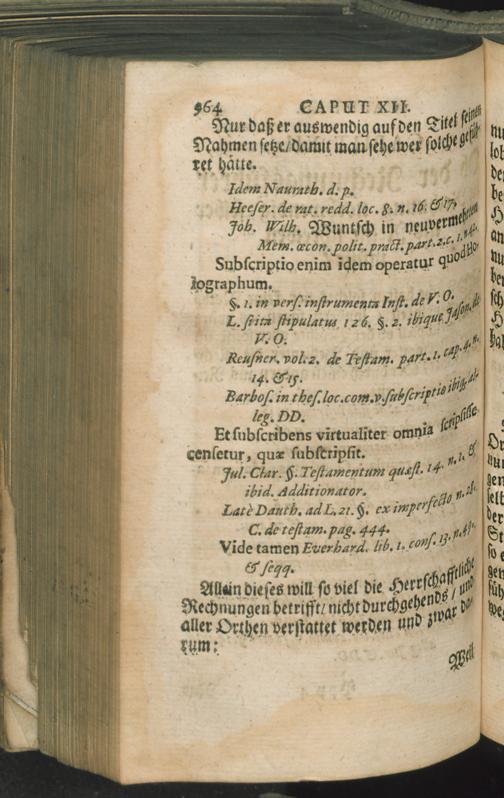 964 CAPUT XII.
Nur daß er auswendig auf den Titel seinen
Nahmen setze/ damit man sehe wer solche gefüh-
ret hätte.
Idem Naurath. d. p.
Heeser. de rat. redd. loc. 8. n. 16. & 17.
Joh. Wilh. Wuntsch in neuvermehrtem
Mem. œcon. polit. pract. part. 2. c. 1. n. 42.
Subscriptio enim idem operatur quod Ho-
lographum.
§. 1. in vers. instrumenta Inst. de V. O.
L. scita stipulatus 126. §. 2. ibique Jason. de
V. O.
Reusner. vol. 2. de Testam. part. 1. cap. 4. n.
14. & 15.
Barbos. in thes. loc. com. v. subscriptio ibiq; al-
leg. DD.
Et subscribens virtualiter omnia scripsisse
censetur, quæ subscripsit.
Jul. Clar. §. Testamentum quæst. 14. n. 1. &
ibid. Additionator.
Latè Dauth. ad L. 21. §. ex imperfecto n. 28.
C. de testam. pag. 444.
Vide tamen Everhard. lib. 1. cons. 13. n. 43.
& seqq.
Allein dieses will so viel die Herrschafftliche
Rechnungen betrifft/ nicht durchgehends / und
aller Orthen verstattet werden und zwar da-
rum:
Weil